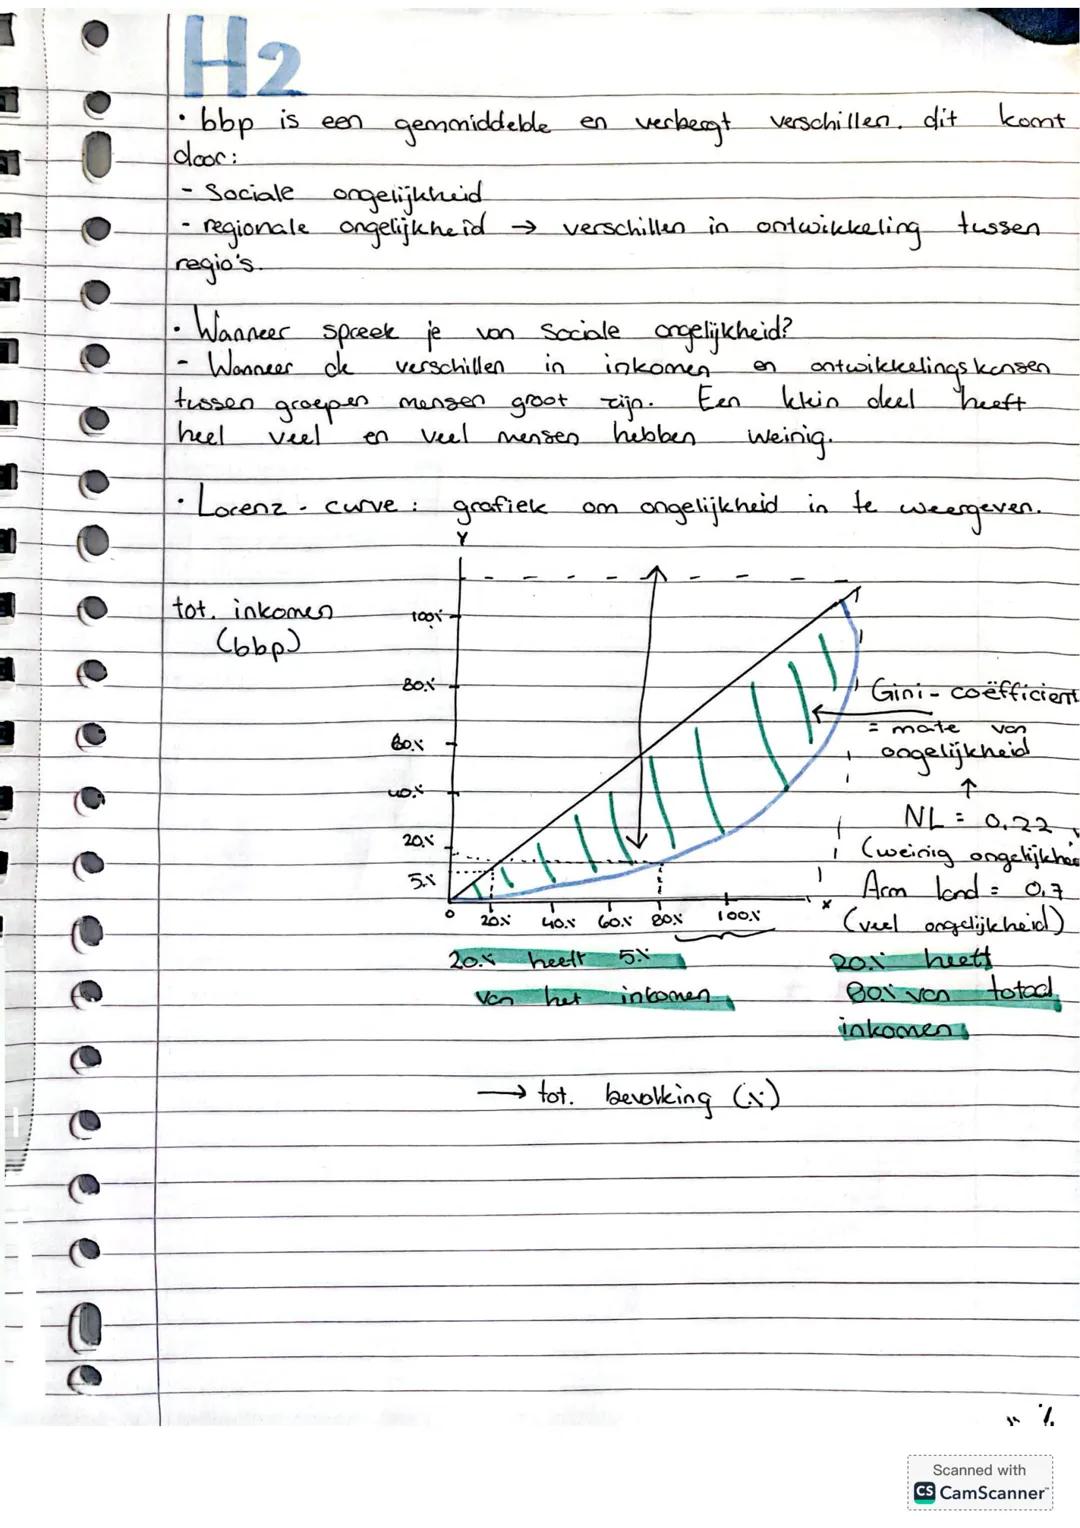 H2
• bbp is een gemmiddelde en verbergt verschillen. dit komt
door:
- Sociale ongelijkheid
- regionale ongelijkheid → verschillen in ontwikkeling tussen
regio's.
• Wanneer spreek je van Sociale ongelijkheid?
- Wanneer de verschillen in inkomen en ontwikkelingskansen
tussen groepen mensen groot zijn. Een klein deel heeft
heel veel en veel mensen hebben weinig.
• Lorenz - curve : grafiek om ongelijkheid in te weergeven.
Y
tot. inkomen
(bbp)
100%
80%
60%
40%
20%
5%
0 20% 40% 60% 80% 100% x
Gini - coëfficient
= mate van
ongelijkheid
↑
NL = 0,22
(weinig ongelijkhei
Arm land = 0,7
(veel ongelijkheid)
20% heeft 5%
van het inkomen
20% heeft
80% van totaal
inkomen
→ tot. bevolking (%)
Scanned with
CS CamScanner